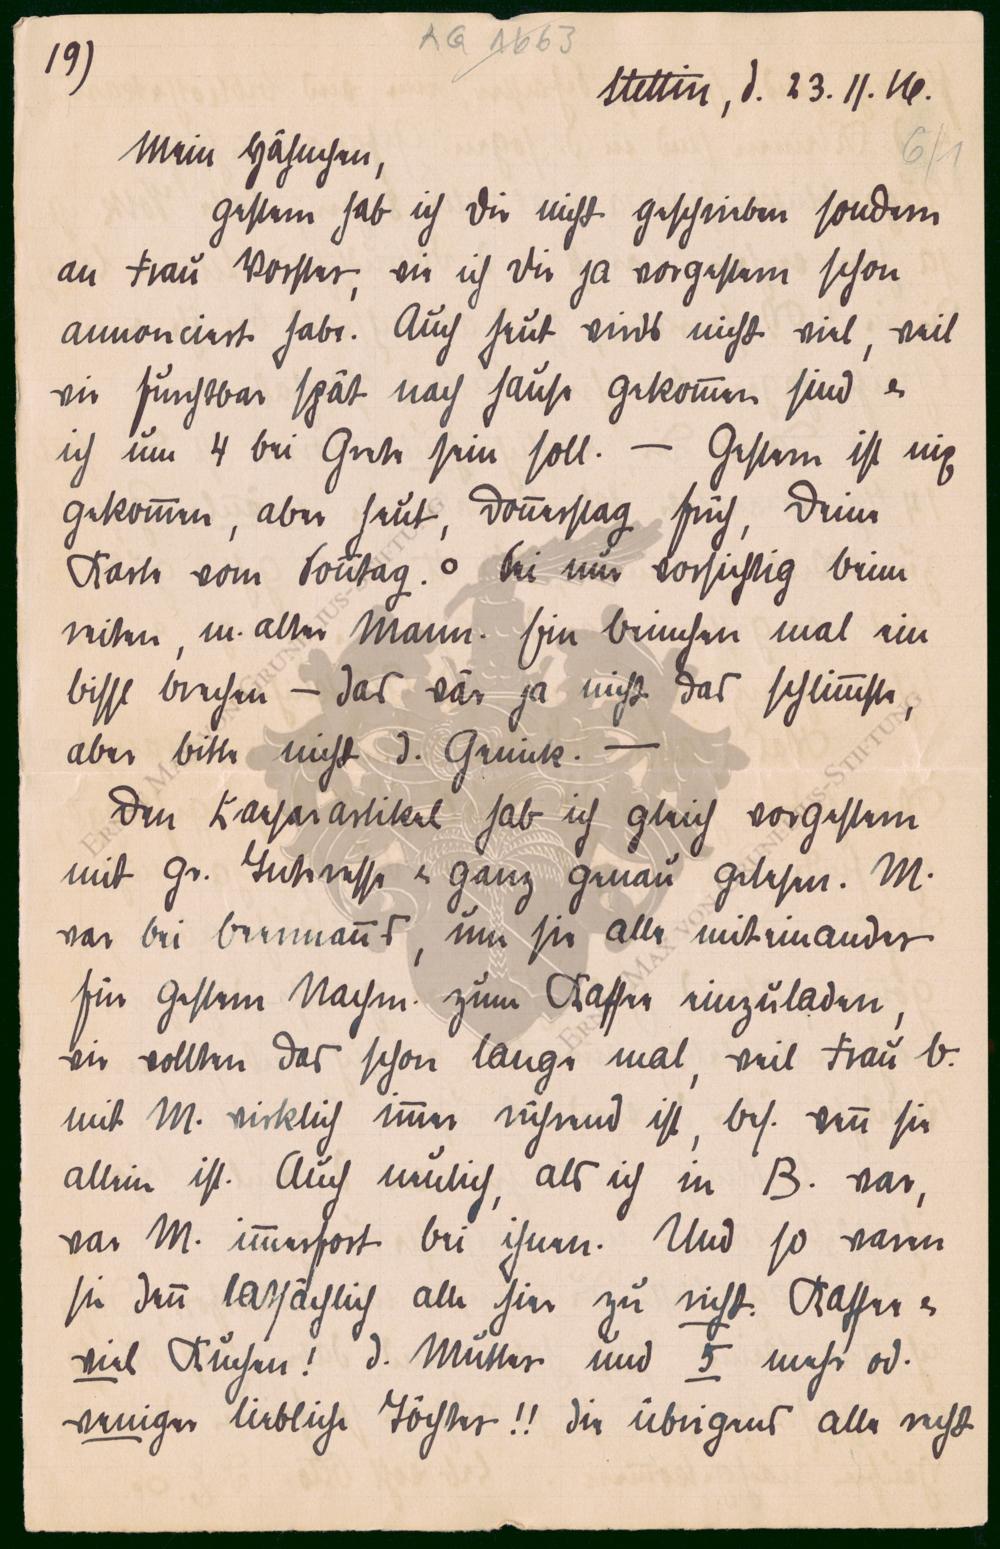 19)
AQ 1663
Stettin, d. 23. 11. 16.
6/1
Mein Hähnchen,
gestern hab ich Dir nicht geschrieben sondern
an Frau Vorster, wie ich Dir ja vorgestern schon
annonciert habe. Auch heut wirds nicht viel, weil
wir furchtbar spät nach hause gekom̄en sind &
ich um 4 bei Grete sein soll. — Gestern ist nix
gekom̄en, aber heut, Don̄erstag früh, Deine
Karte vom Son̄tag. Sei nur vorsichtig beim
reiten, m. alter Mann. Ein beinchen mal ein
bissl brechen – das wär ja nicht das schlim̄ste,
aber bitte nicht d. Genick. —
Den artikel hab ich gleich vorgestern
mit gr. Interesse & ganz genau gelesen. M.
war bei, um sie alle miteinander
für gestern Nachm. zum Kaffee einzuladen,
wir wollten das schon lange mal, weil Frau b.
mit M. wirklich im̄er rührend ist, bes. wen̄ sie
allein ist. Auch neulich, als ich in B. war,
war M. im̄erfort bei ihnen. Und so waren
sie den̄ tatsächlich alle hier zu richt. Kaffee &
viel Kuchen! d. Mutter und 5 mehr od.
weniger liebliche Töchter!! die übrigens alle recht
ERNST MAX VON GRUNELIUS-STIFTUNG
ERNST MAX VON GRUNELIUS-STIFTUNG